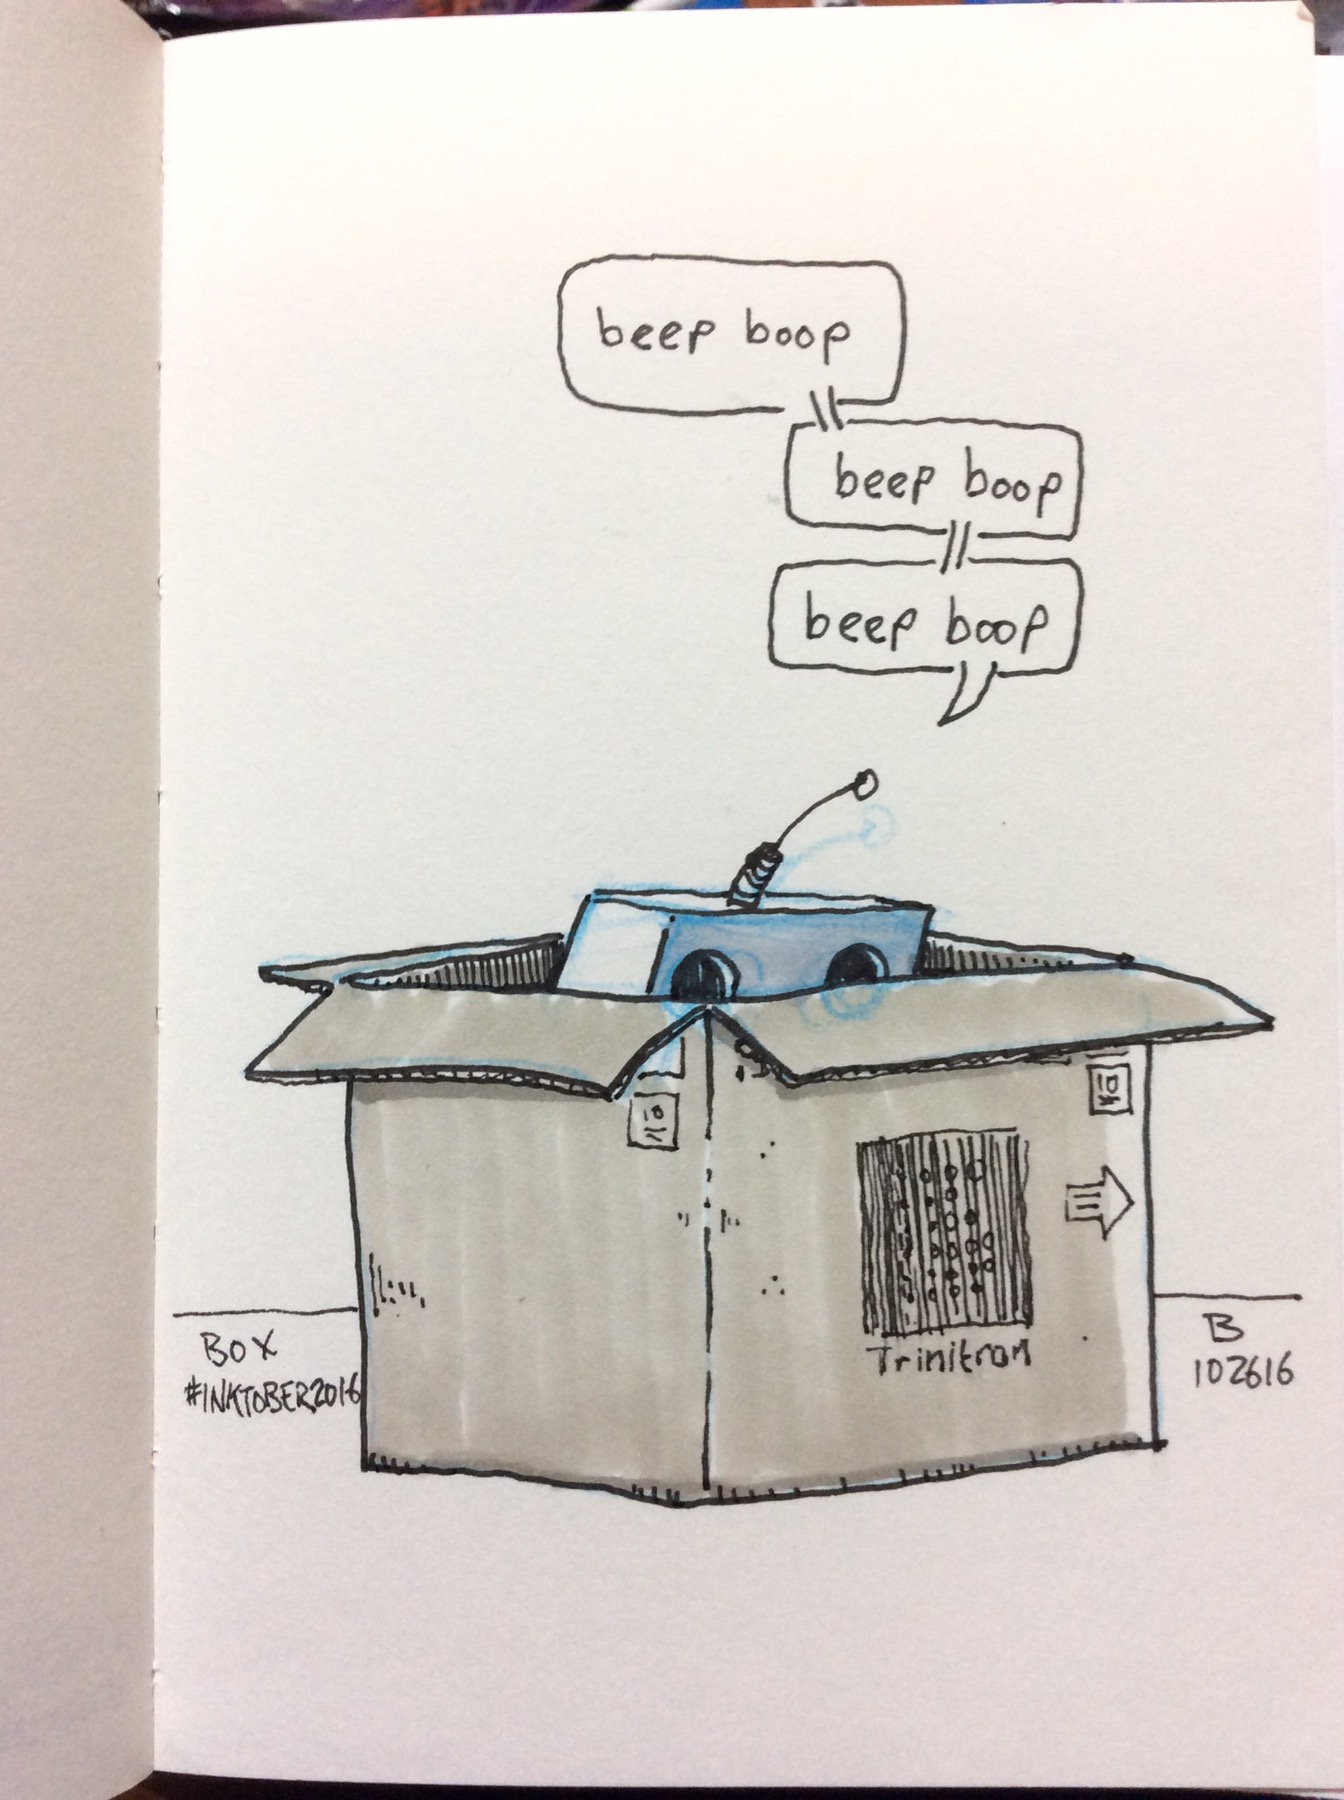 beep boop
beep boop
beep boop
10
10
Trinitron
BOX
#INKTOBER2016
B
102616